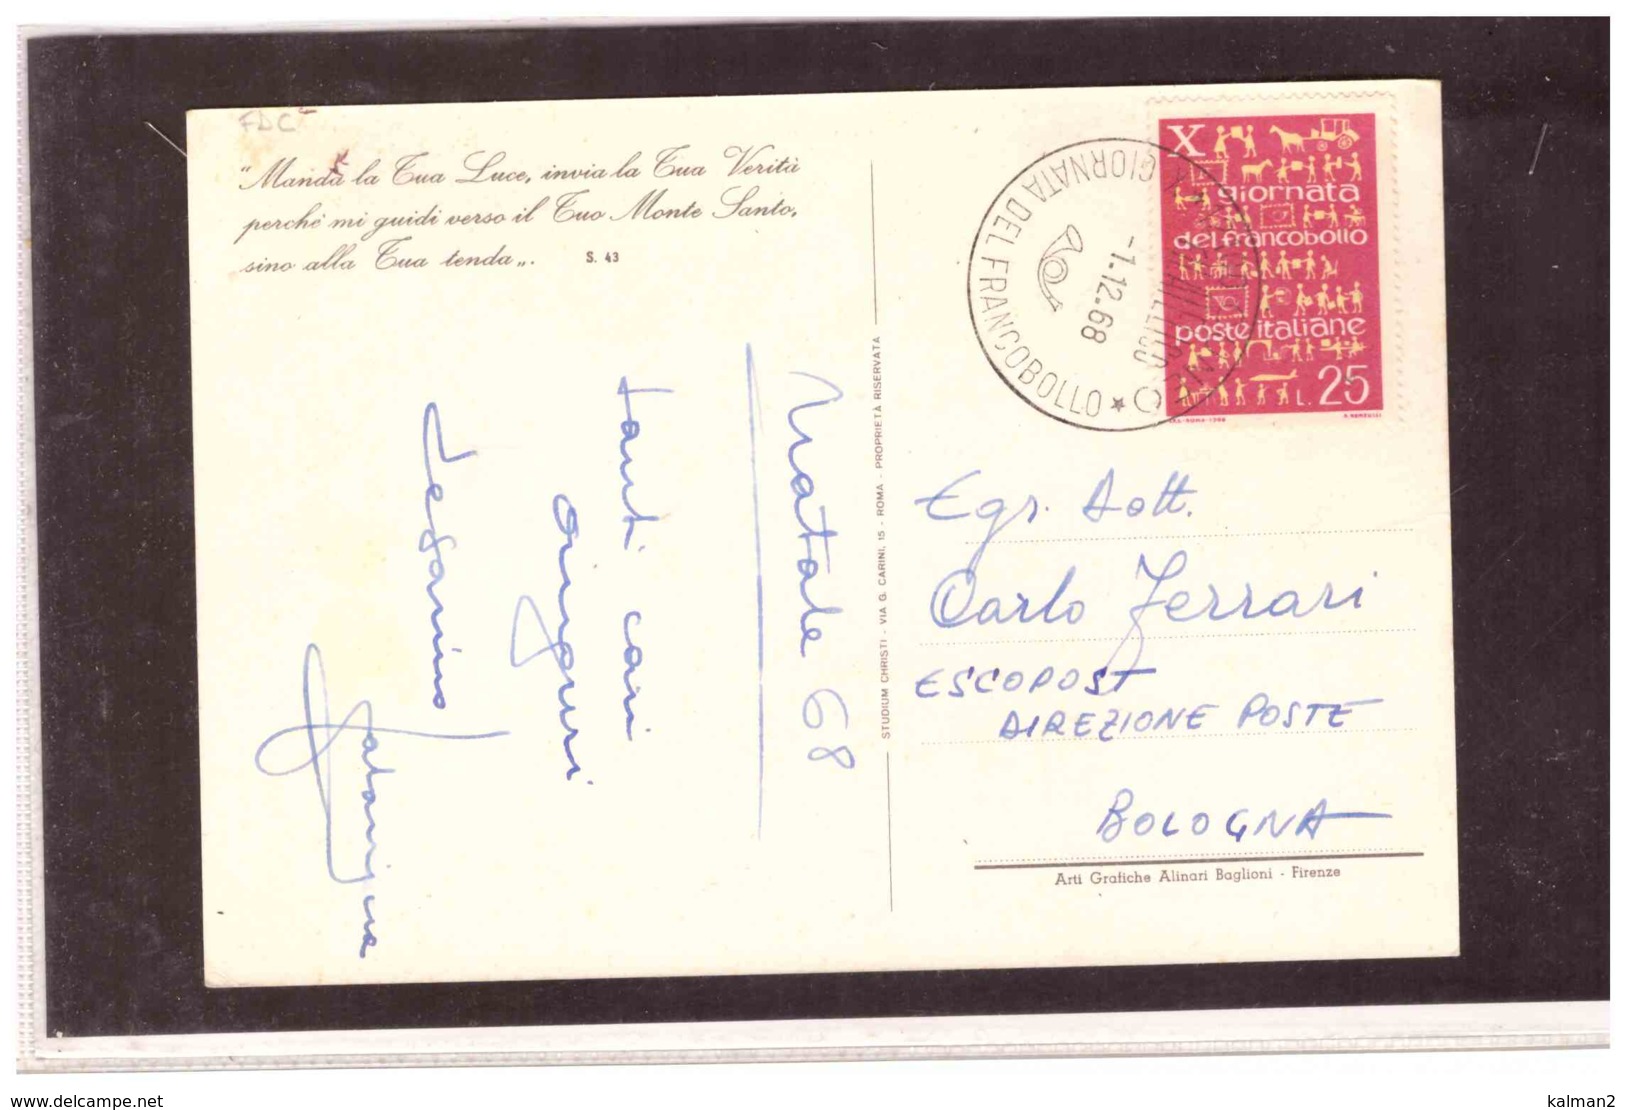 FDC
"Manda la Tua Luce, invia la Tua Verità
perché mi guidi verso il Tuo Monte Santo,
sino alla Tua tenda„.
S. 43
Natale 68
Tanti cari
auguri
STUDIUM CHRISTI - VIA G. CARINI, 15 - ROMA - PROPRIETÀ RISERVATA
X GIORNATA DEL FRANCOBOLLO
-1.12.68
X
giornata
del francobollo
poste italiane
L. 25
Egr. Dott.
Carlo Ferrari
ESCOPOST
DIREZIONE POSTE
BOLOGNA
Arti Grafiche Alinari Baglioni - Firenze
www.delcampe.net
kalman2